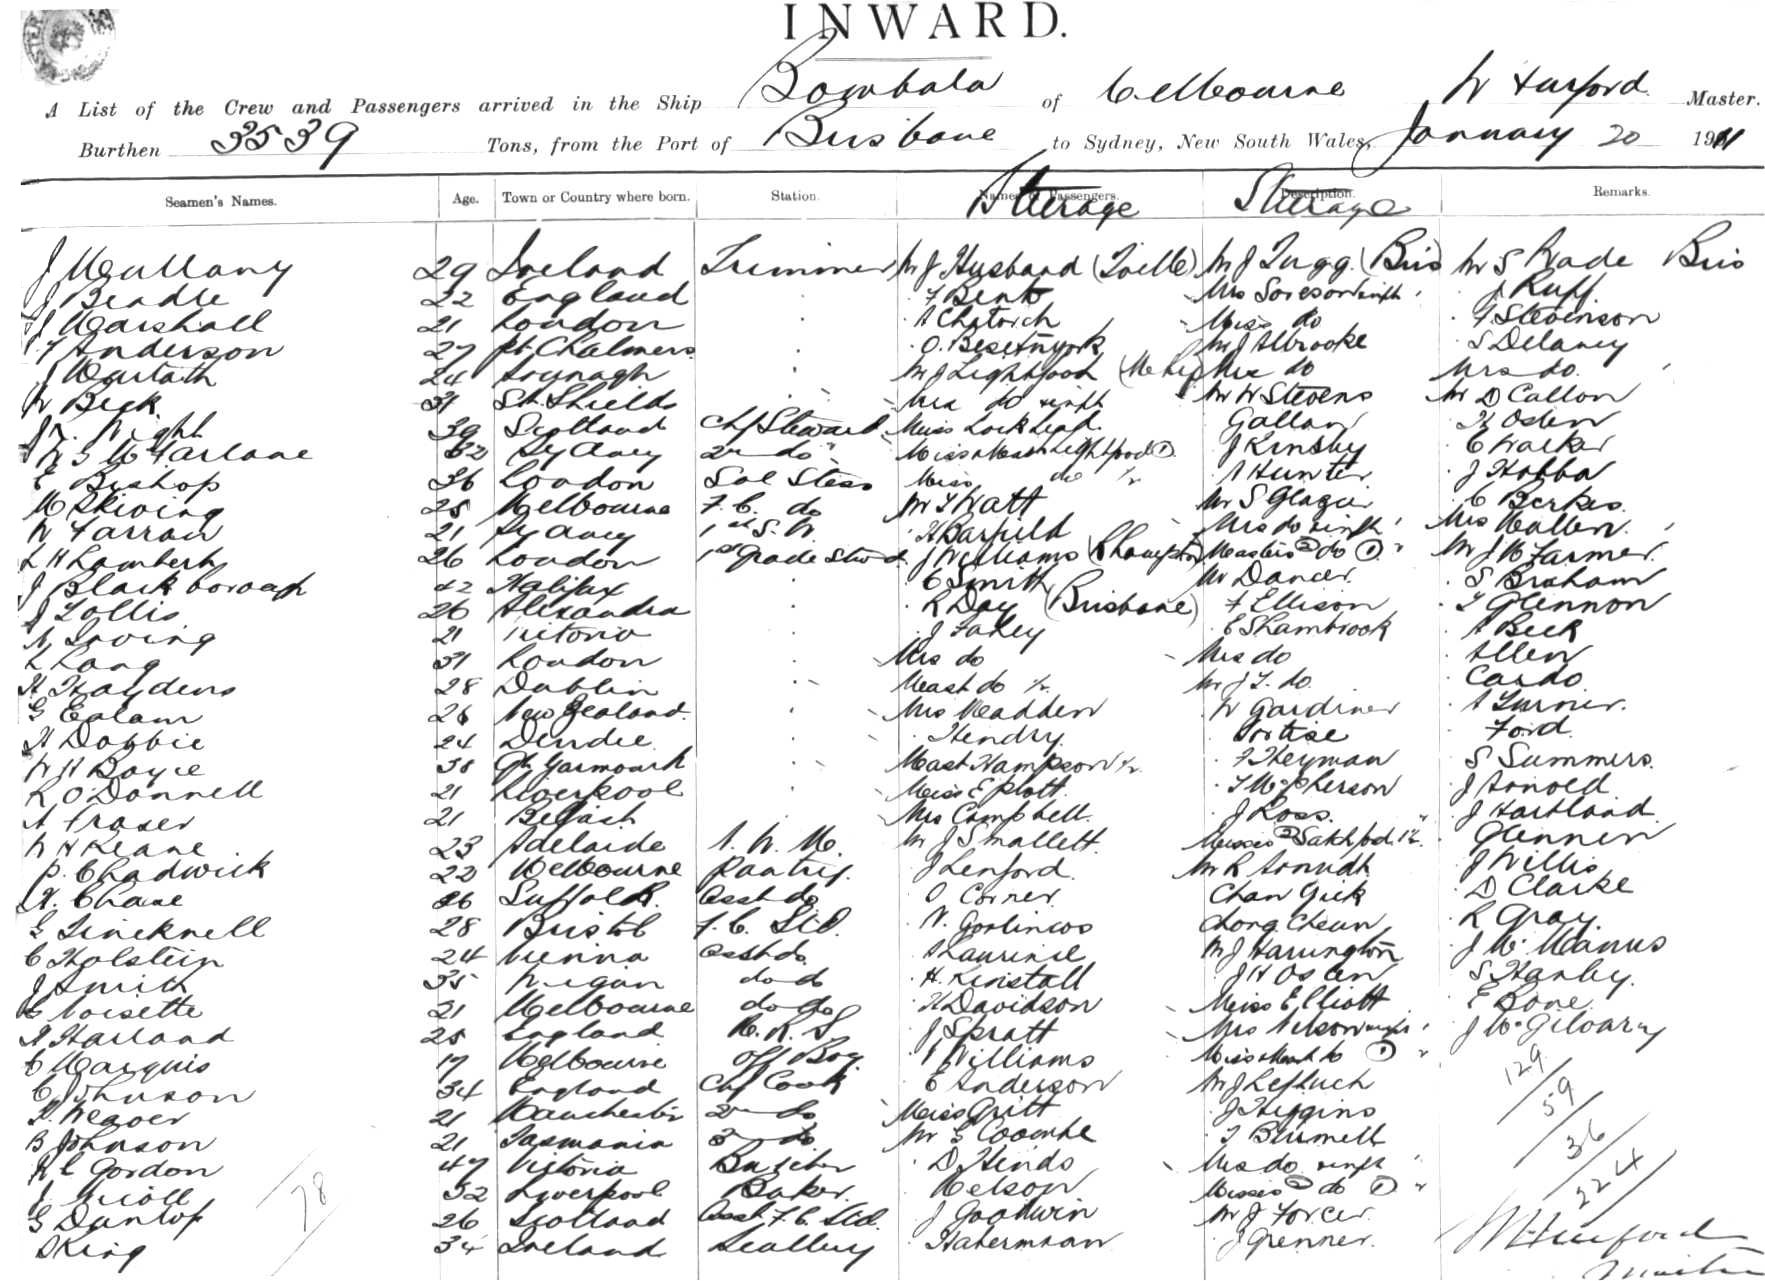 INWARD.
A List of the Crew and Passengers arrived in the Ship Bombala of Melbourne W Hurford Master.
Burthen 3539 Tons, from the Port of Brisbane to Sydney, New South Wales, January 20 1911
Seamen's Names. Age. Town or Country where born. Station. Names of Passengers. Steerage Description. Steerage Remarks.
J Mullany 29 Ireland Trimmer Mr J Husband Mr J Tugg (Bris Mr S Wade Bris
J Beadle 22 England F Bent Mrs J Ruff
J Marshall 21 London A Miss do F Stevenson
Anderson 27 Pt. Chalmers O. Mr J Albrooke S Delaney
J 24 Mr J Lightfoot Mrs do Mrs do
W Beck 31 Sth Shields Mrs do inft Mr W Stevens Mr D Callon
J Wright 39 Scotland Chf Steward Miss Gallan H Osten
McFarlane 32 Sydney 2nd do Miss Mast Lightfoot J Kinsey C Walker
E Bishop 36 London Sal Stess Miss do ½ A Hunter J Hobba
M Skiving 25 Melbourne F. C. do Mr T Watt Mr S Glazier C
W Farrow 21 Sydney 1st S. W. H Barfield Mrs do inft Mrs Mallen
L H Lambert 26 London 1st Grade Stwd J Williams Masters 2 do Mr J McFarmer
J Blackborough 42 Halifax C Smith Mr Dancer S Braham
J Tollis 26 Alexandra R Day (Brisbane) F Ellison T Glennon
A Irving 21 Victoria J Fahey E Shambrook A Beck
L Lang 31 London Mrs do Mrs do Allen
H Haydens 28 Dublin Mast do ½ Mr J T. do Cardo
G Ealam 28 New Zealand Mrs Madden W Gardiner A Turner
H Dobbie 24 Dundee Hendry Portise Ford
W H Boyce 38 Gt Yarmouth Mast Hampson ½ F Heyman S Summers
R O'Donnell 21 Liverpool Miss E Plott T McPherson J Arnold
A Fraser 21 Belfast Mrs Campbell J Ross J Hartland
W H Keane 23 Adelaide A. W. M. Mr J Smallett Misses 2 Glennen
P. Chadwick 22 Melbourne Pantry J Lenford Mr R J Willis
A. Chase 26 Suffolk Asst do O Corner Chan Gick D Clarke
G Tincknell 28 Bristol F. C. Std. V. Chong Cheun R Gray
C Holstein 24 Vienna Asst do A Mr J Harrington J McManus
J Smith 35 Wigan do do H. Kinstall J H Osten S Hanley
Noisette 21 Melbourne do do H Davidson Miss Elliott E Bone
A Harland 25 England J Spratt Mrs Nelson infts J McGilvary
C Marquis 17 Melbourne Off Boy Williams Miss Mast do 129
C Johnson 34 England Chf Cook E Anderson Mr J 59
Weaver 21 Manchester 2nd do Miss Gritt J Higgins 36
B Johnson 21 Tasmania 3rd do Mr G Coombe T Brumell 224
R C Gordon 47 Victoria Butcher D Hinds Mrs do infts
78 32 Liverpool Baker Nelson Misses 2 do
G Dunlop 26 Scotland Asst F. C. Std. J Goodwin Mr J Forcer
D King 34 Ireland Scullery Haberman J Grenner W Hurford
Master